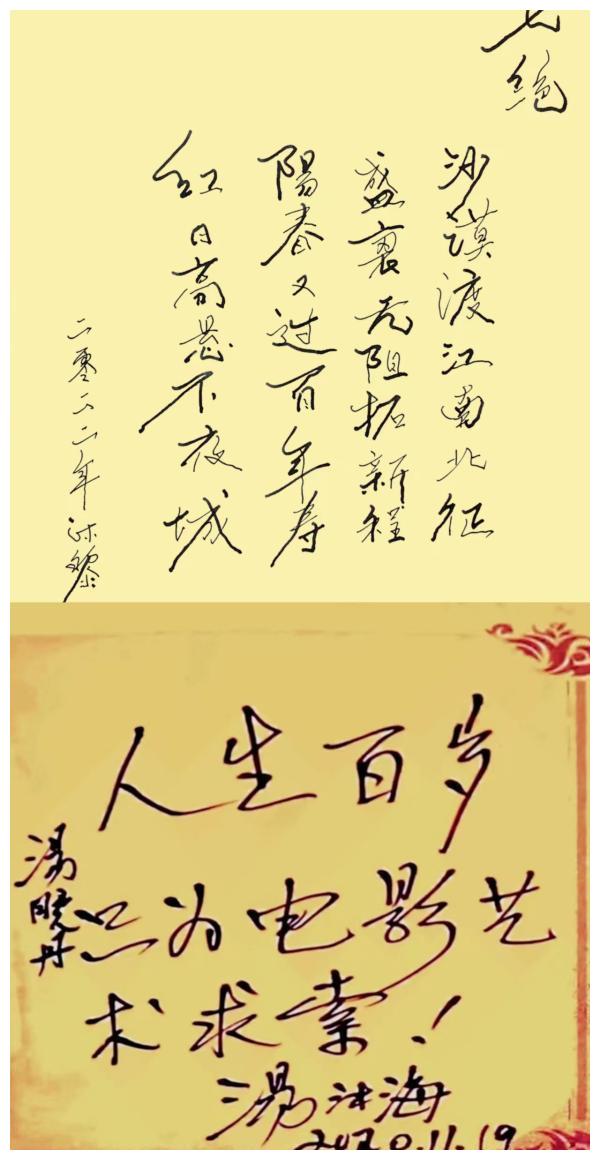 七绝
沙漠渡江南北征
盛裏无阻拓新程
陽春又过百年寿
红日高悬不夜城
二零二二年沐黎
人生百岁
只为电影艺
术求索!
汤晓丹
汤沐海
2020.11.19